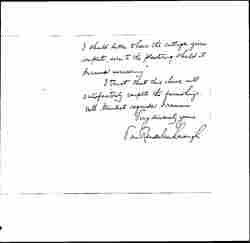 I should like to have the cottage given
complete, even to the plastering should it
become necessary.
I trust that this above will
satisfactorily complete the furnishings.
With kindest regards I remain
Very sincerely yours